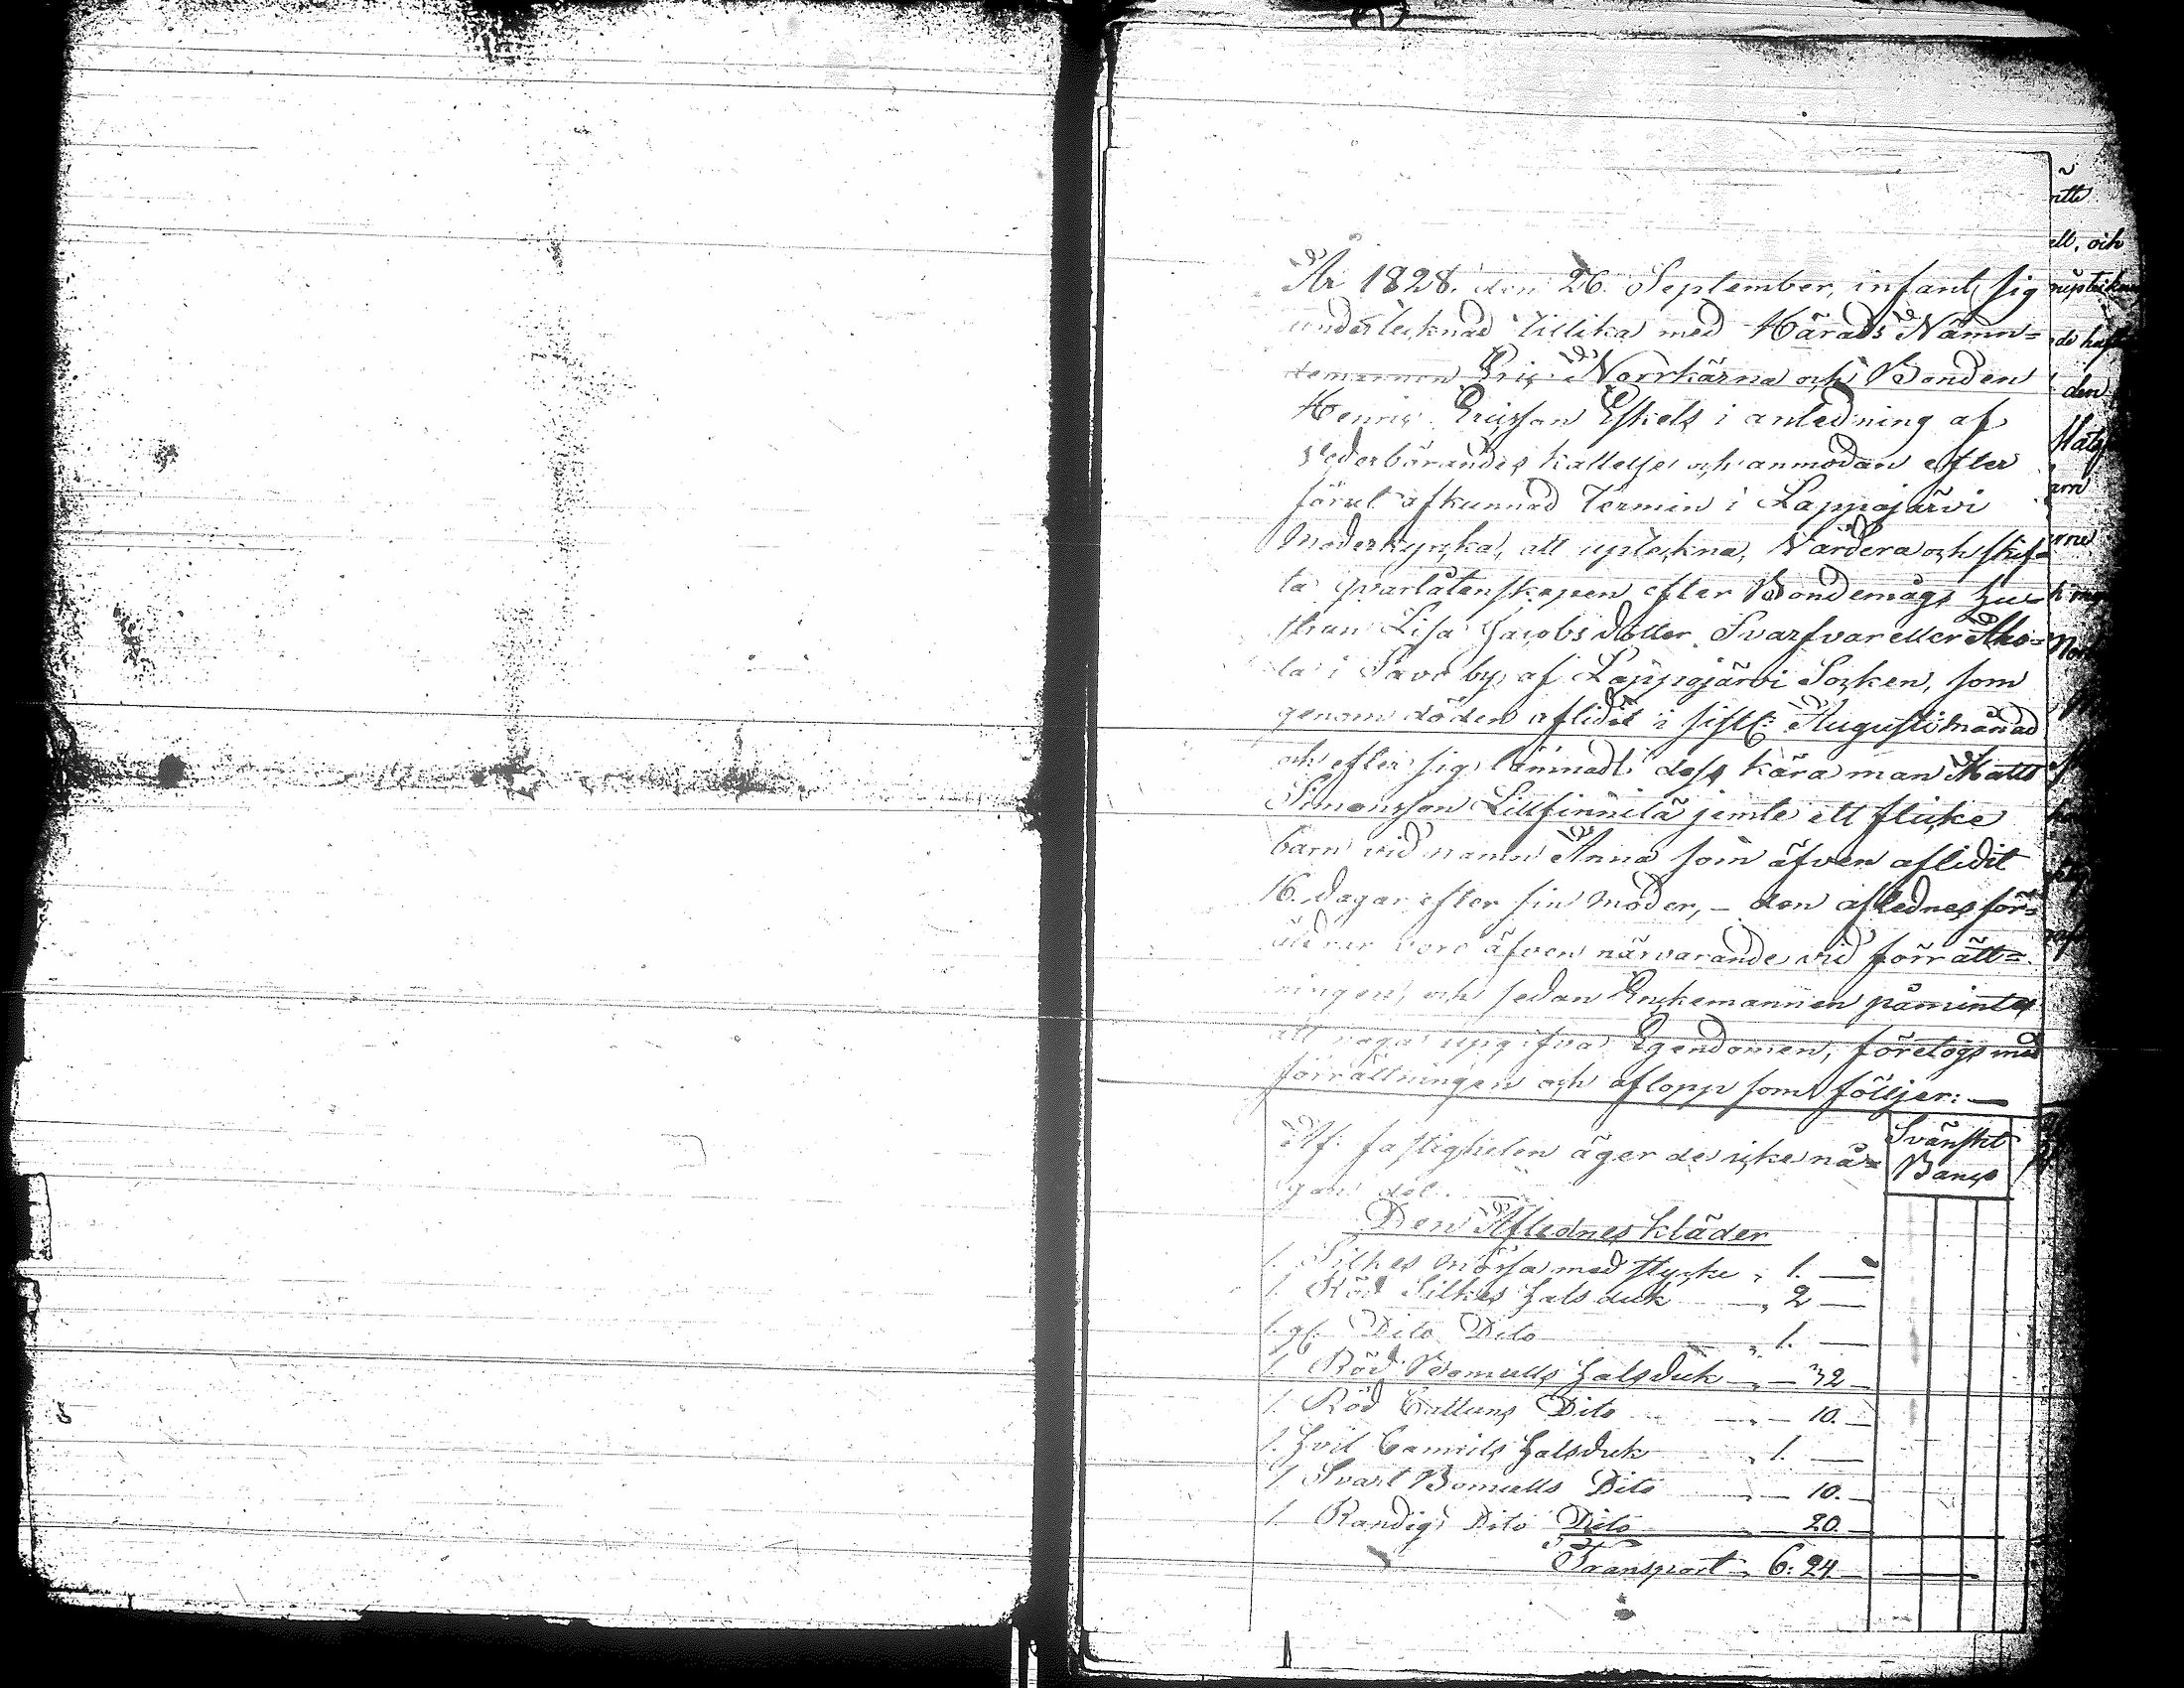 År 1828. den 26 September, infant sig
undertecknad tillika med Härads Nämn=
demannen Eric Norrkärna och Bonden
Henric Ericsson Eskels i anledning af
Vederbörandes kallelse och anmodan efter
förut afkunnad Termin i Lappajärvi
Moderkyrka, att uptekna, Värdera och skif=
ta qvarlåtenskapen efter Bondemågs Hu=
strun Lisa Jacobsdotter Svarfvar eller Aho=
la i Savo by af Lappajärvi Socken, som
genom döden aflidit i sistl: Augusti månad
och efter sig lämnadt dess kära man Matts
Simonsson Lillfinnilä jemte ett flicke
barn vid namn Anna som äfven aflidit
16. dagar efter sin moder, – den aflednes för=
äldrar voro äfven närvarande vid förrätt=
ningen, och sedan Enckemannen påmintes
att noga upgifva Egendomen, företogs med
förrättningen och aflopp som följer: —
Af: fastigheten äger de icke nå=
gon del.
Svänskt
Banco
Den Aflednes kläder
1. Silkes mössa med stycke „ 1. —
1. Röd Silkes Halsduk — „ 2 —
1. gl: Dito Dito „ 1. —
1. Röd Bomulls Halsduk „ — 32 —
1. Röd Cattuns Dito — „ — 10. —
1. Hvit Camrits Halsduk „ 1. —
1 Svart Bomulls Dito — 10. —
1. Randig Dito Dito — 20. —
Transport „ 6: 24. —
ell, och
den